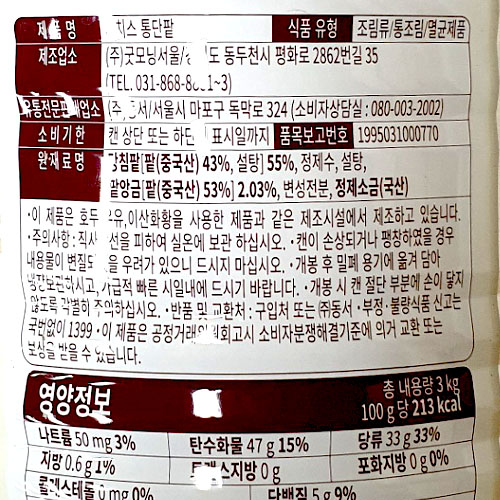 제품명 치스 통단팥 식품 유형 조림류/통조림/멸균제품
제조업소 (주)굿모닝서울/ 도 동두천시 평화로 2862번길 35
(TEL. 031-868-8 1~3)
유통전문판매업소 (주 서/서울시 마포구 독막로 324 (소비자상담실 : 080-003-2002)
소비기한 캔 상단 또는 하단 표시일까지 품목보고번호 1995031000770
원재료명 당침팥[팥(중국산) 43%, 설탕] 55%, 정제수, 설탕,
팥앙금[팥(중국산) 53%] 2.03%, 변성전분, 정제소금(국산)
·이 제품은 호두 우유, 이산화황을 사용한 제품과 같은 제조시설에서 제조하고 있습니다.
·주의사항 : 직사 선을 피하여 실온에 보관 하십시오. ·캔이 손상되거나 팽창하였을 경우
내용물이 변질 될 우려가 있으니 드시지 마십시오. ·개봉 후 밀폐 용기에 옮겨 담아
냉장보관하시고, 가급적 빠른 시일내에 드시기 바랍니다. ·개봉 시 캔 절단 부분에 손이 닿지
않도록 각별히 주의하십시오. ·반품 및 교환처 : 구입처 또는 ㈜동서 ·부정·불량식품 신고는
국번없이 1399 ·이 제품은 공정거래위원회고시 소비자분쟁해결기준에 의거 교환 또는
보상을 받을 수 있습니다.
영양정보 총 내용량 3 kg
100 g 당 213 kcal
나트륨 50 mg 3% 탄수화물 47 g 15% 당류 33 g 33%
지방 0.6 g 1% 트랜스지방 0 g 포화지방 0 g 0%
콜레스테롤 0 mg 0% 단백질 5 g 9%